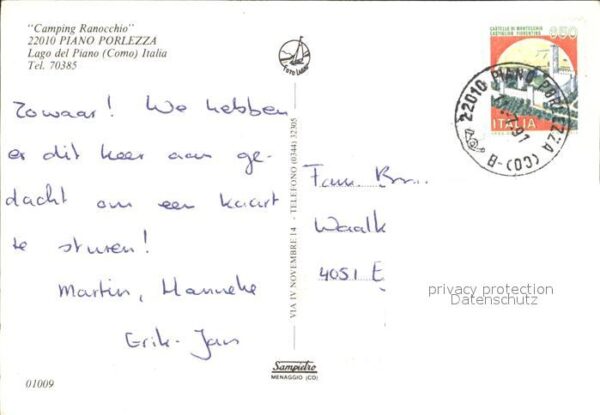 "Camping Ranocchio"
22010 PIANO PORLEZZA
Lago del Piano (Como) Italia
Tel. 70385
Zowaar! We hebben
er dit keer aan ge-
dacht om een kaart
te sturen!
Martin, Hanneke
Erik-Jan
01009
VIA IV NOVEMBRE 14 - TELEFONO (0344) 32305
Sampietro
MENAGGIO (CO)
CASTELLO DI MONTECCHIO
CASTIGLION FIORENTINO
650
ITALIA
22010 PIANO PORLEZZA (CO) - B
Fam. Br...
Waalk
4051 E
privacy protection
Datenschutz